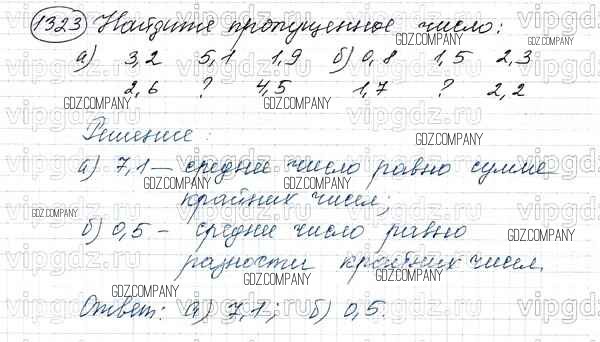 1323 Найдите пропущенное число:
а) 3,2 5,1 1,9 б) 0,8 1,5 2,3
2,6 ? 4,5 1,7 ? 2,2
Решение:
а) 7,1 — среднее число равно сумме
крайних чисел;
б) 0,5 - среднее число равно
разности крайних чисел.
Ответ: а) 7,1; б) 0,5.
vipgdz.com
GDZ.COMPANY